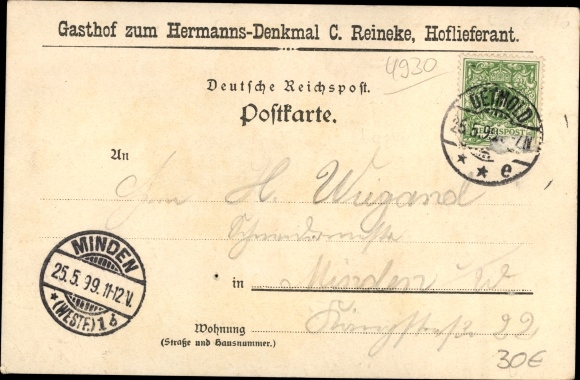 Gasthof zum Hermanns-Denkmal C. Reineke, Hoflieferant.
4930
Deutsche Reichspost.
Postkarte.
DETMOLD
25.5.99. 7-8N
* * e
An
H. Wiegand
MINDEN
25.5.99.11-12V.
*(WESTF.)1b
in Minden i/W
Wohnung 22
(Straße und Hausnummer.)
30€